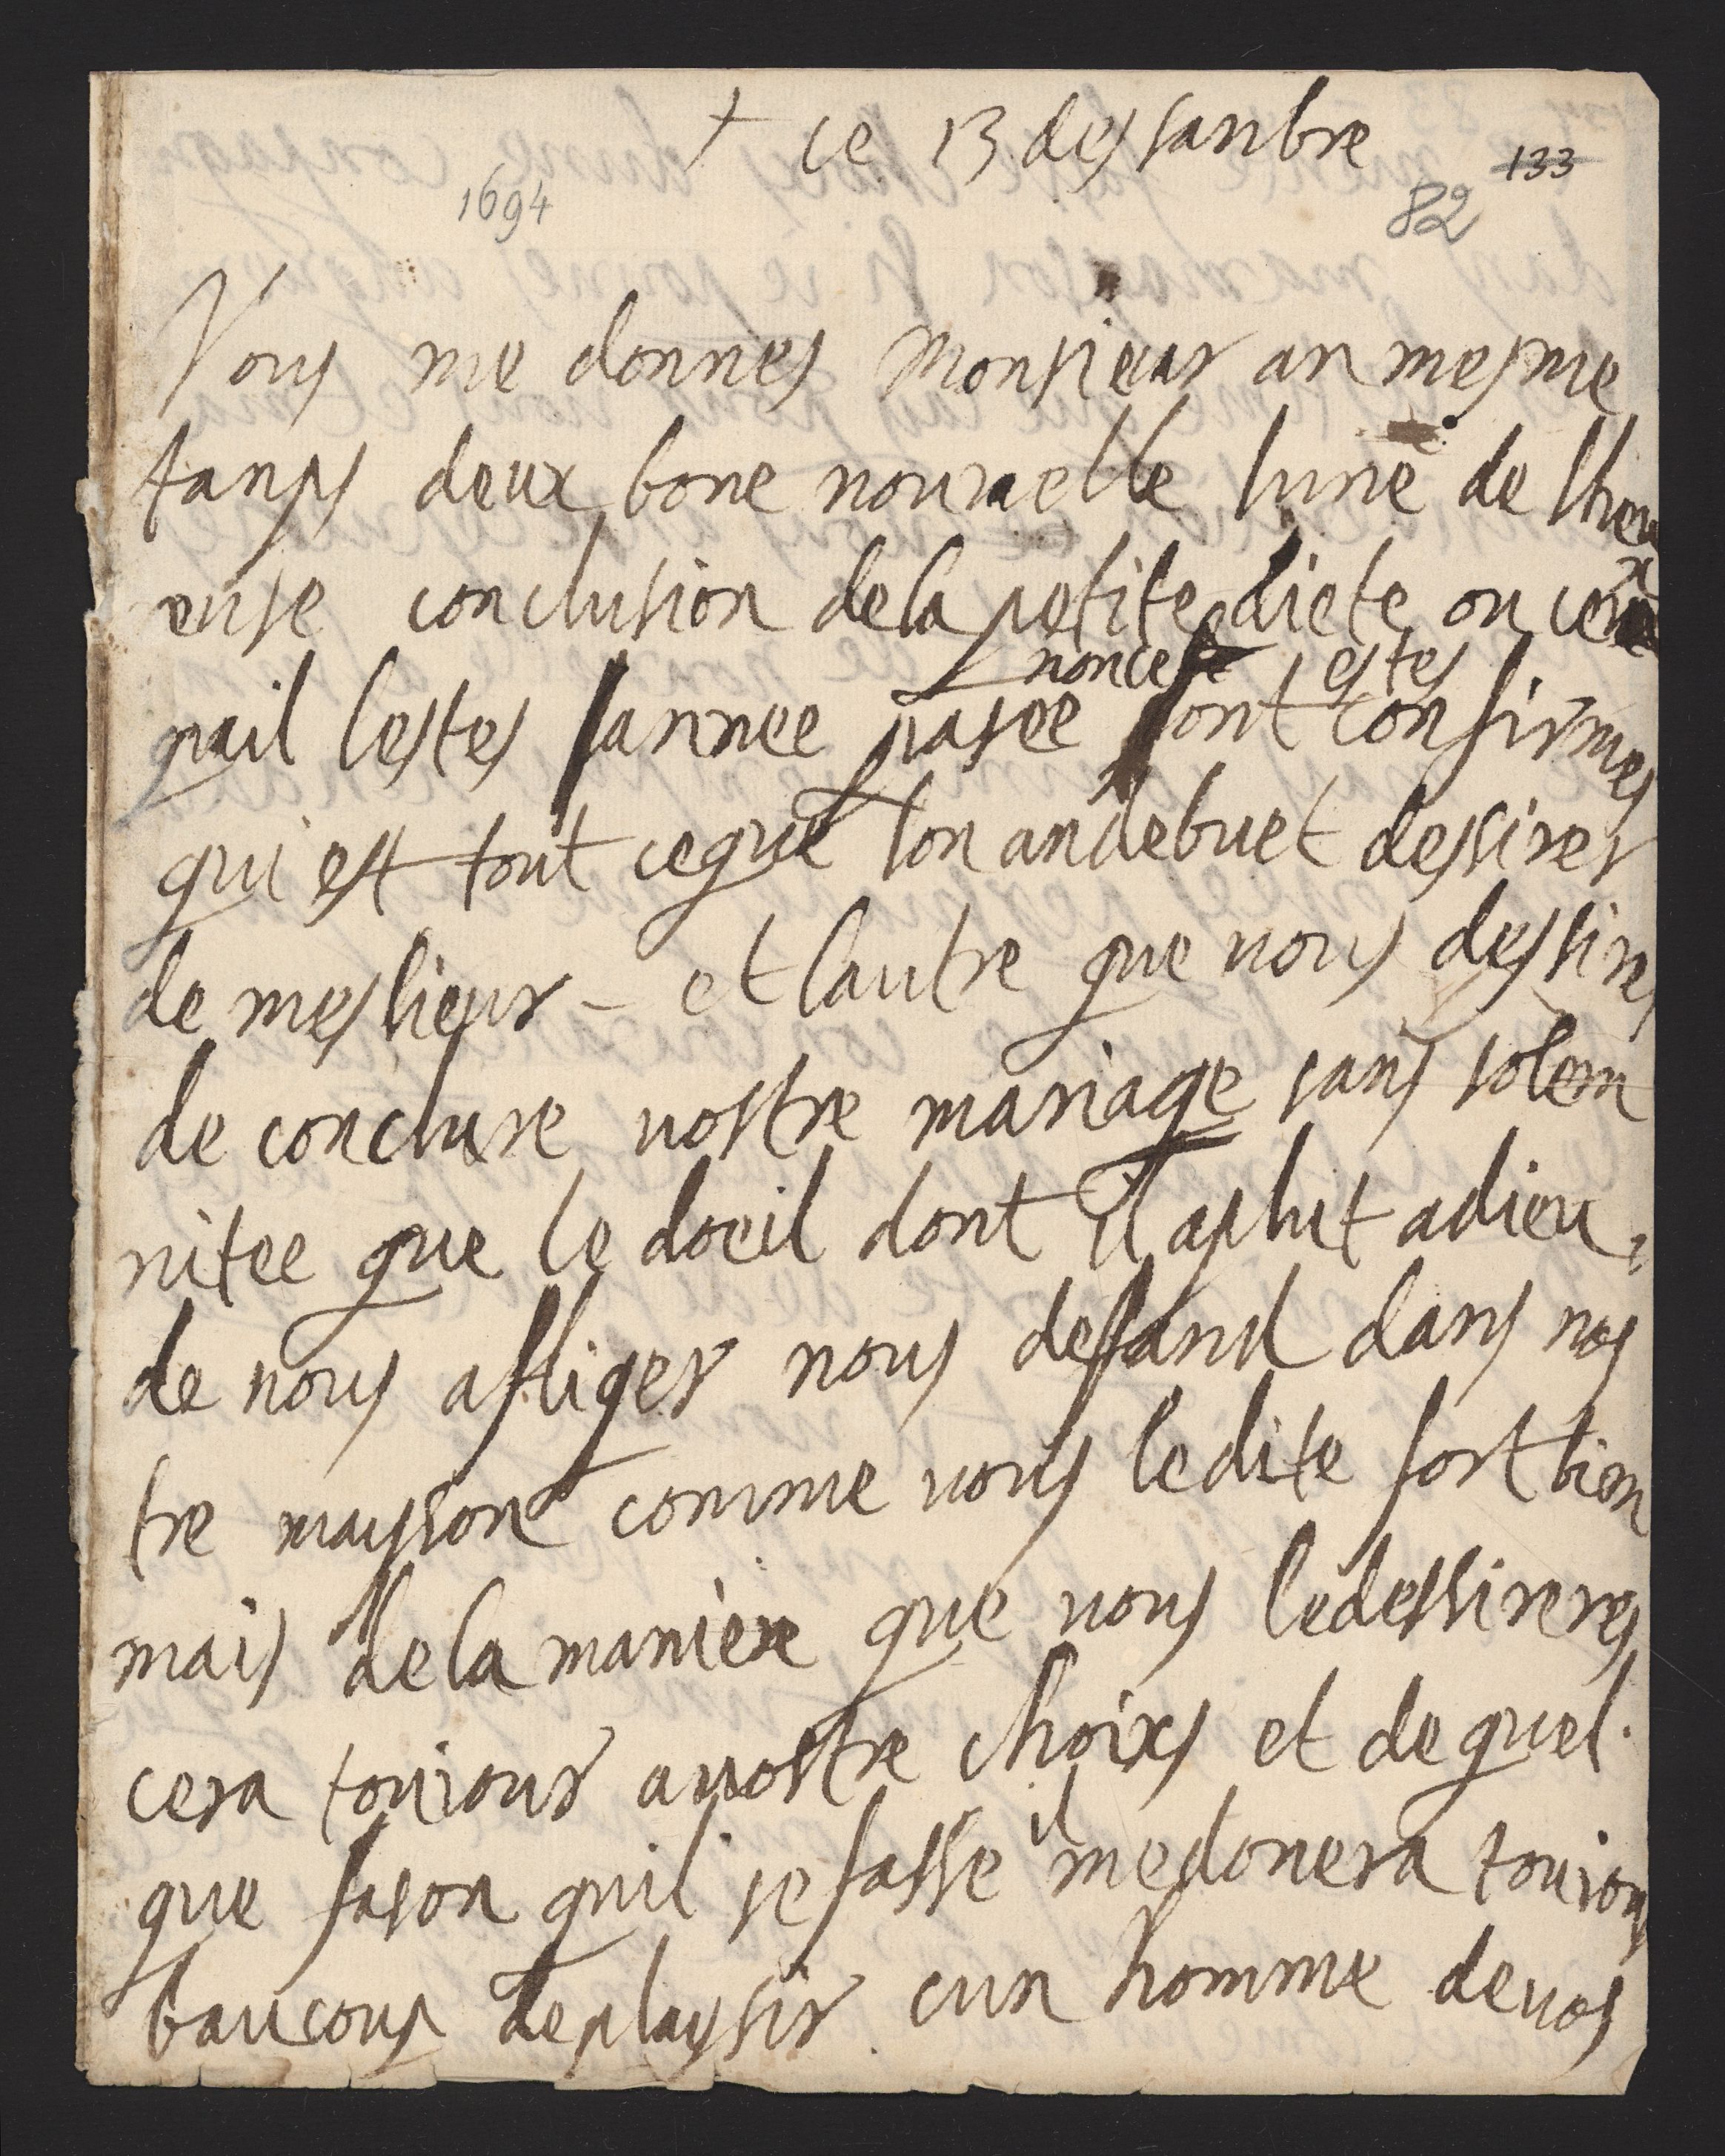 + ce 13 dessanbre
133
1694
82
Vous me donnes Monsieur an mesme
tanps deux bone nouvaelle lune de lheu
euse conclusion dela petite diete ou ceux
noncese estes
qail lestes lannee pasee sont confirmes
qui est tout ceque lon andebuet dessirer
de meslieur - et lautre que vous dessires
de conclure vostre mariage sans solem
nitee que le doeil dont il aplut adieu
de nous afliger nous deffand dans nos
tre mayson comme vous ledite fort bien
mais dela maniere que vous ledessireres
cera touiour avostre choixs et de quel
que fason quil se fasse il medonera touiours
baucoup deplaysir cun homme devos